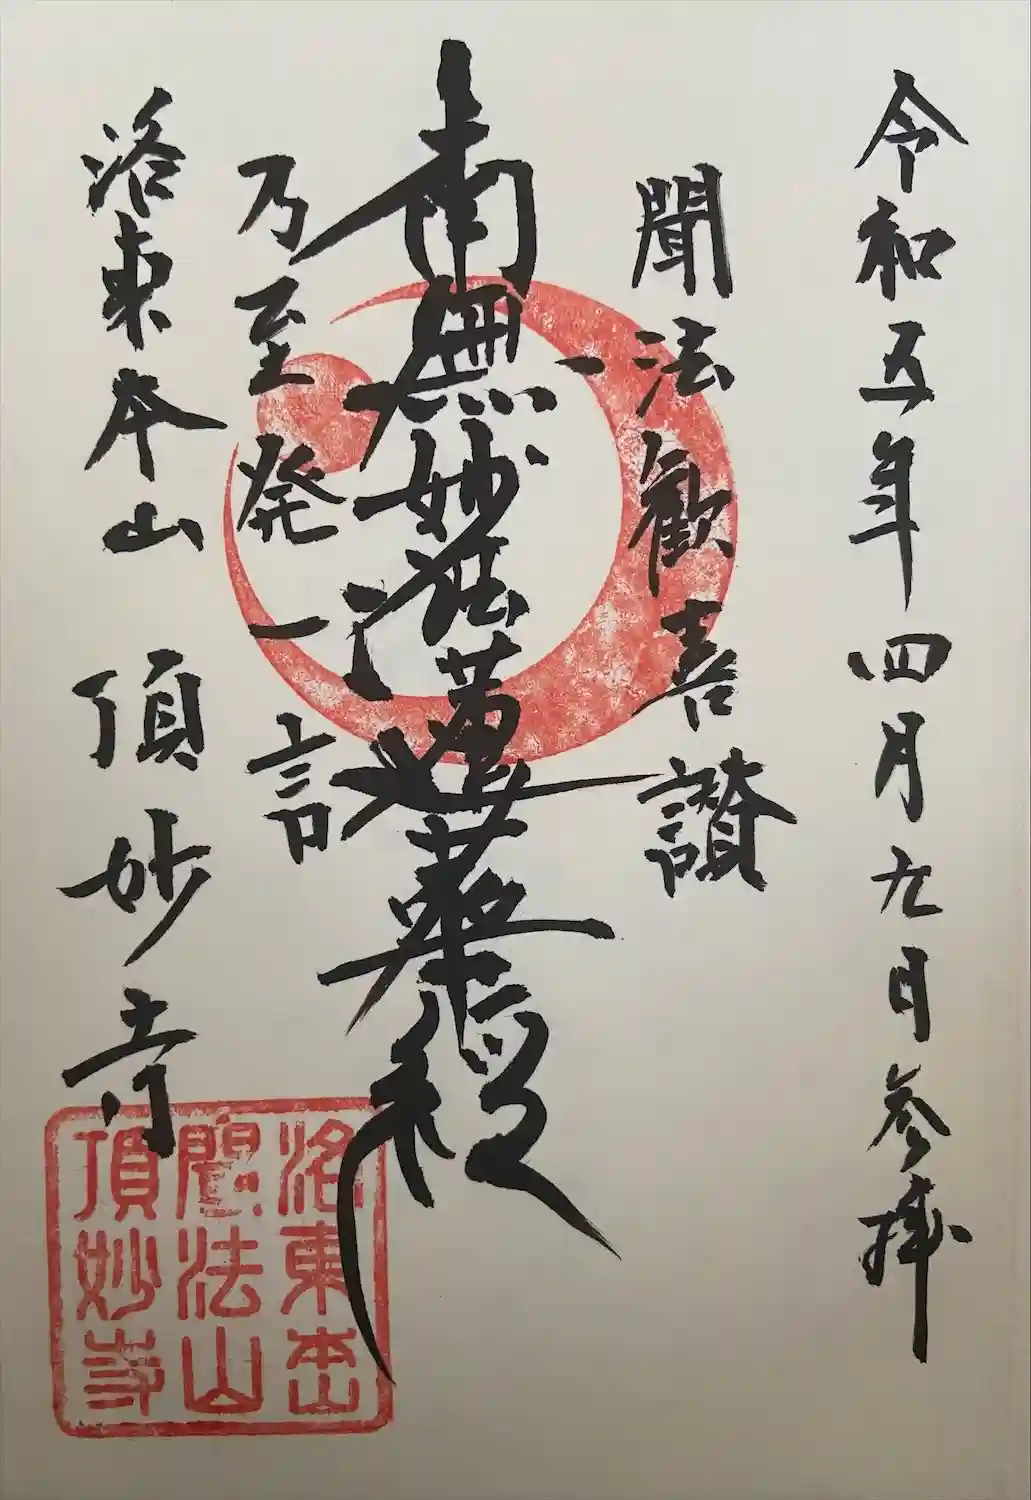 令和五年四月九日参拝
聞法歓喜讃
南無妙法蓮華経
乃至発一言
洛東本山 頂妙寺
洛東本山
聞法山
頂妙寺